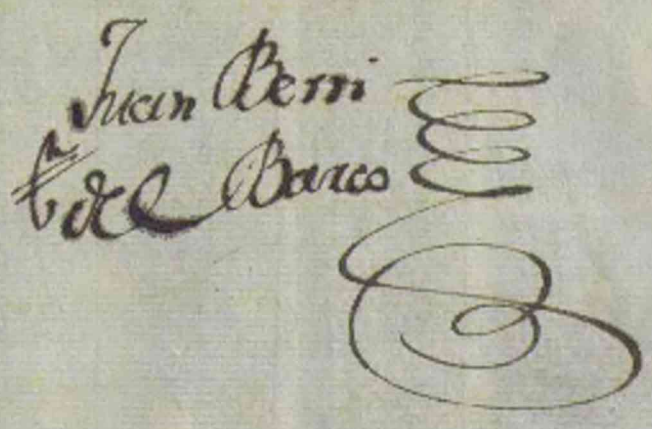 Juan Berri
del Barco